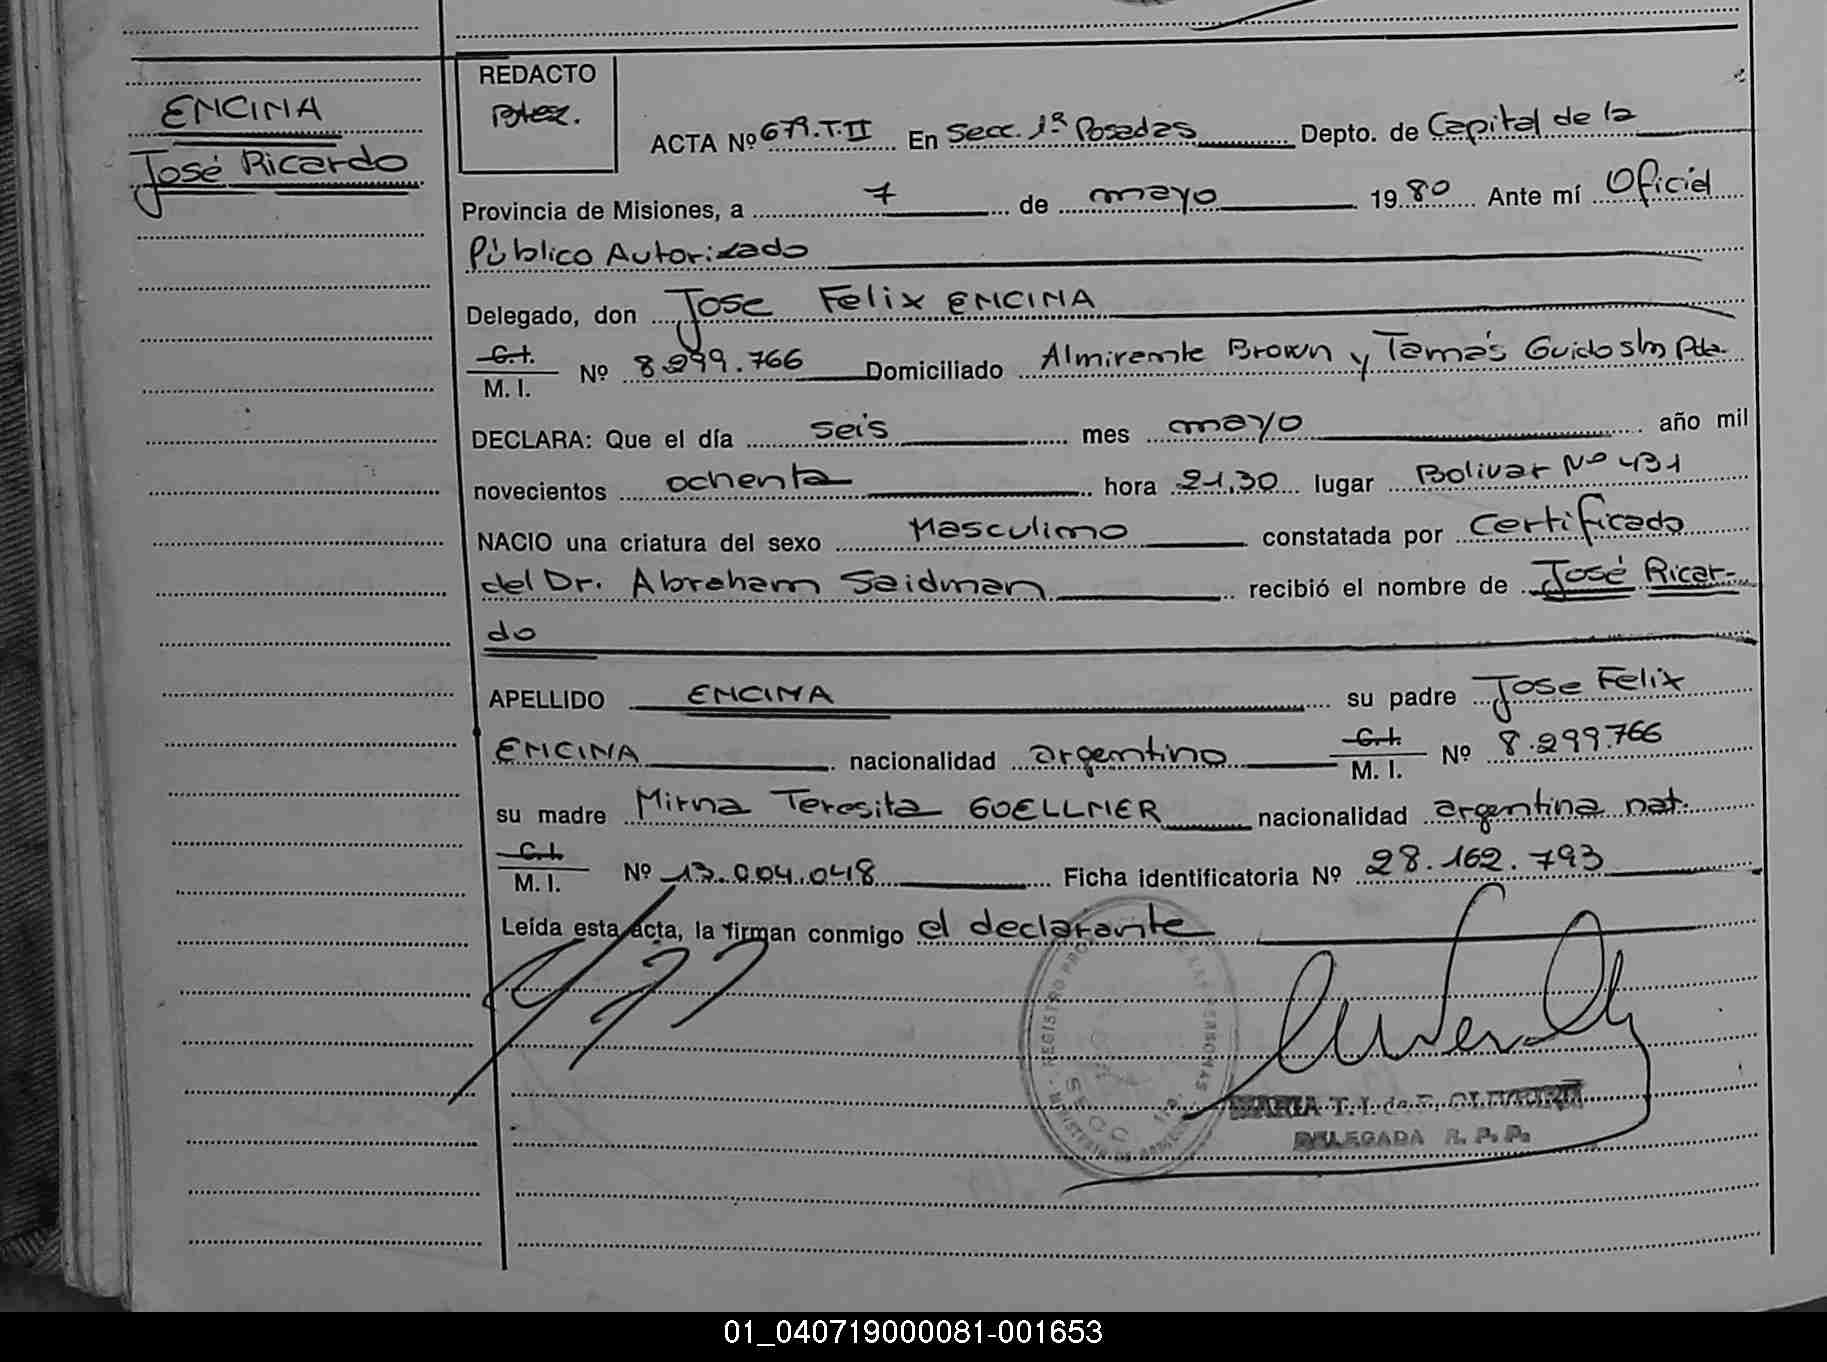 ENCINA
José Ricardo
REDACTO
ACTA Nº 679.T.II En Secc. 1ª Posadas Depto. de Capital de la
Provincia de Misiones, a 7 de mayo 1980 Ante mí Oficial
Público Autorizado
Delegado, don Jose Felix ENCINA
C.I.
M. I. Nº 8.299.766 Domiciliado Almirante Brown y Tomás Guido s/n Pdas.
DECLARA: Que el día seis mes mayo año mil
novecientos ochenta hora 21,30 lugar Bolivar Nº 431
NACIO una criatura del sexo Masculino constatada por Certificado
del Dr. Abraham Saidman recibió el nombre de José Ricar-
do
APELLIDO ENCINA su padre Jose Felix
ENCINA nacionalidad argentino C.I. M. I. Nº 8.299.766
su madre Mirna Teresita GOELLNER nacionalidad argentina nat.
C.I.
M. I. Nº 13.004.048 Ficha identificatoria Nº 28.162.793
Leída esta acta, la firman conmigo el declarante
MARIA T. I. de F. OLIVEIRA
DELEGADA R. P. P.
01_040719000081-001653